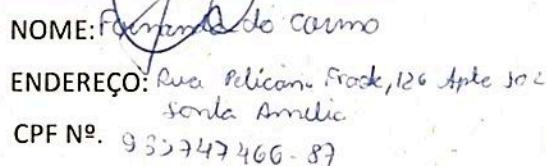 NOME: Fernanda do Carmo
ENDEREÇO: Rua Pelicano Frade, 126 Apto 302
Santa Amélia
CPF Nº. 933747466-87